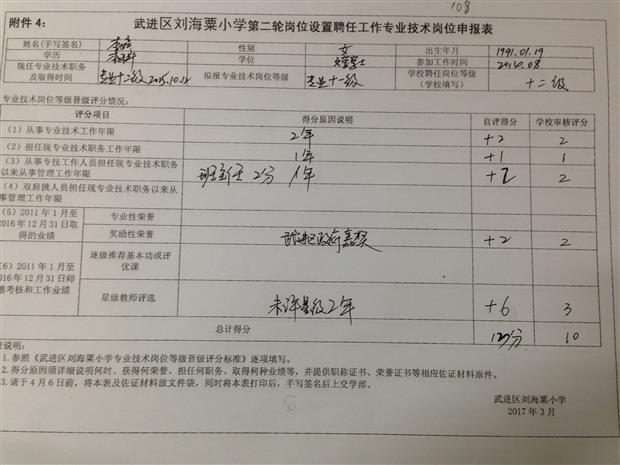 108
附件4： 武进区刘海粟小学第二轮岗位设置聘任工作专业技术岗位申报表
姓名(手写签名) 性别 女 出生年月 1991.01.19
学历 本科 学位 参加工作时间 2014.08
现任专业技术职务及取得时间 专业十二级 2015.10.12 拟报专业技术岗位等级 专业十一级 学校聘任岗位等级（学校填写） 十二级
专业技术岗位等级晋级评分情况：
评分项目 得分原因说明 自评得分 学校审核评分
（1）从事专业技术工作年限 2年 +2 2
（2）担任现专业技术职务工作年限 1年 +1 1
（3）从事专技工作人员担任现专业技术职务
以来从事管理工作年限 班主任 2分 1年 +2 2
（4）双肩挑人员担任现专业技术职务以来从
事管理工作年限
（5）2011年1月至
2016年12月31日取
得的业绩
专业性荣誉
奖励性荣誉 武进区政府嘉奖 +2 2
逐级推荐基本功或评
优课
（6）2011年1月至
2016年12月31日师
德考核和工作业绩
星级教师评选 未评星级2年 +6 3
总计得分 13分 10
说明：
1.参照《武进区刘海粟小学专业技术岗位等级晋级评分标准》逐项填写。
2.得分原因须详细说明何时、获得何荣誉、担任何职务、取得何种业绩等，并提供职称证书、荣誉证书等相应佐证材料原件。
3.请于4月6日前，将本表及佐证材料放文件袋，同时将本表打印后，手写签名后上交学部。
武进区刘海粟小学
2017年3月